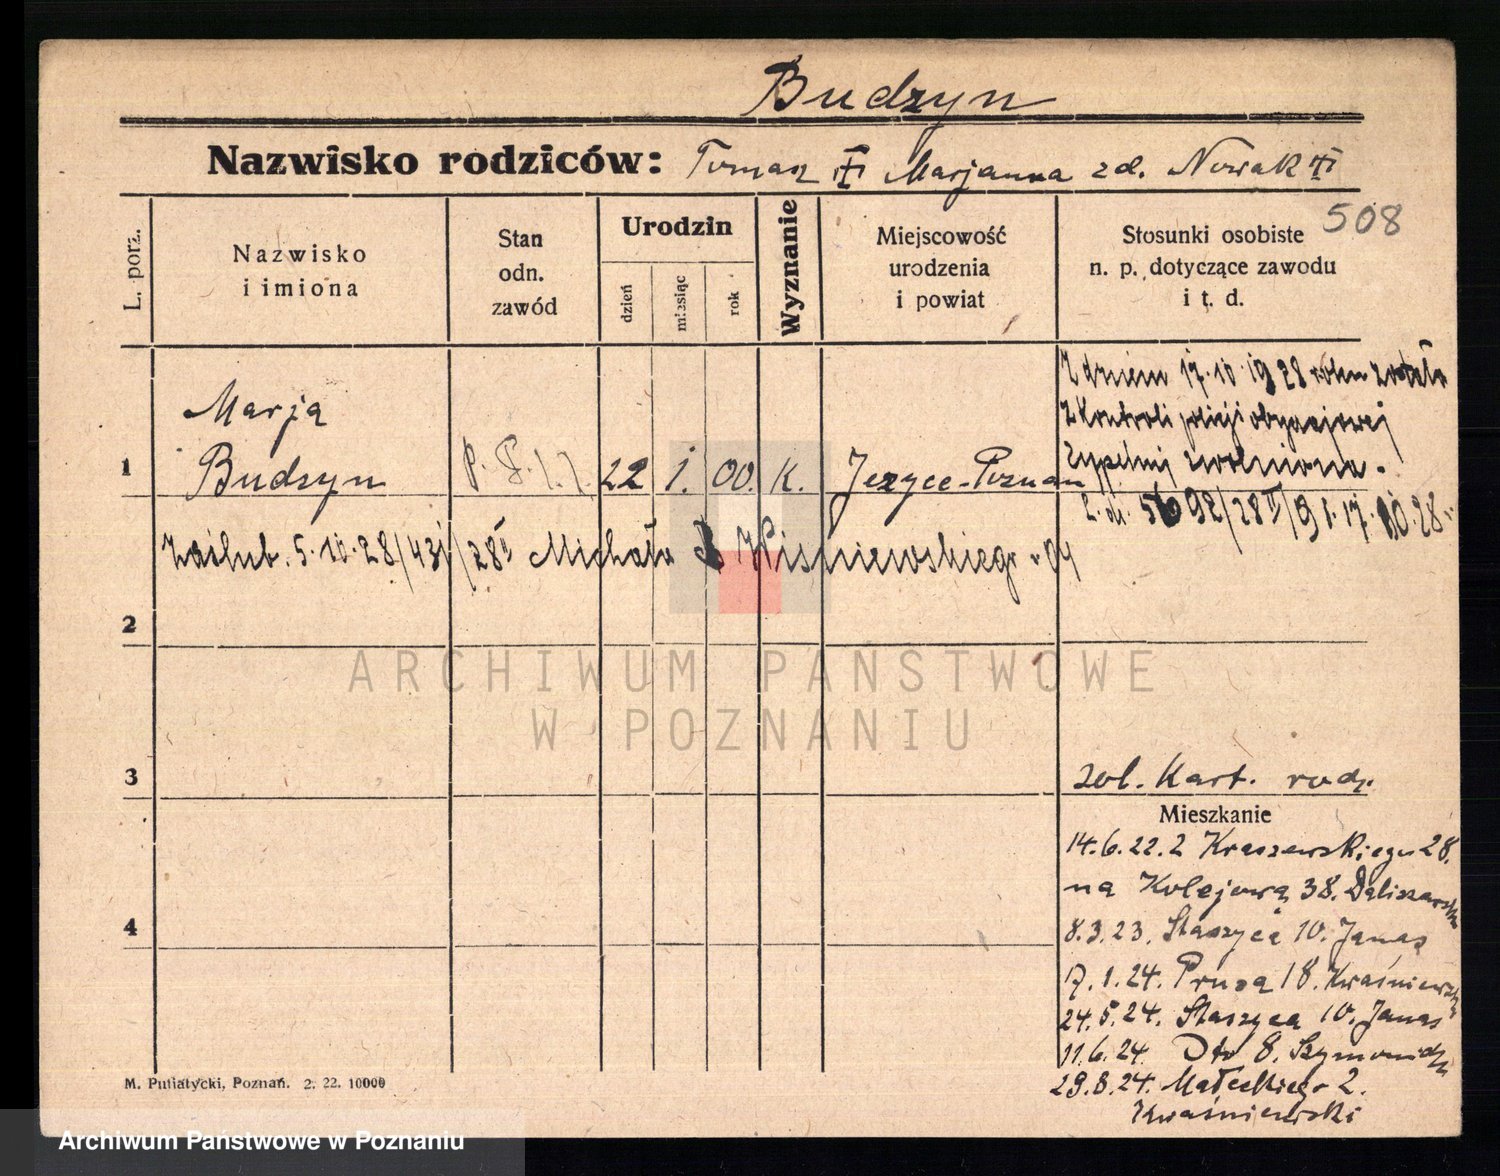 Budzyn
Nazwisko rodziców: Tomasz Marjanna zd. Nowak
508
L. porz.
Nazwisko
i imiona
Stan
odn.
zawód
Urodzin
dzień
miesiąc
rok
Wyznanie
Miejscowość
urodzenia
i powiat
Stosunki osobiste
n. p. dotyczące zawodu
i t. d.
Z dniem 17.10.1928 roku została
z kontroli policji obyczajowej
zupełnie zwolniona.
L. dz. 5692/28 II/91. 17.10.28.
1
Marja
Budzyn
22 1. 00. K. Jezyce-Poznan
Zaślub. 5.10.28/431/28 Michała Wiśniewskiego 04
2
3
zol. Kart. rodz.
Mieszkanie
14.6.22.2 Kraszewskiego 28.
na Kolejową 38.
8.3.23. Staszyca 10. Janas
17.1.24. Prusa 18. Kwaśniewski
24.5.24. Staszyca 10. Janas
11.6.24. Dto 8.
29.8.24. Małeckiego 2.
Kwaśniewski
4
M. Putiatycki, Poznań. 2. 22. 10000
ARCHIWUM PAŃSTWOWE
W POZNANIU
Archiwum Państwowe w Poznaniu